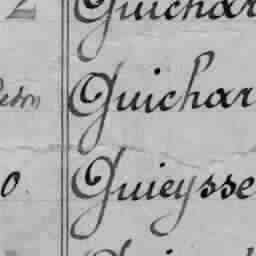 2 Guichar
Guichar
0. Guieysse